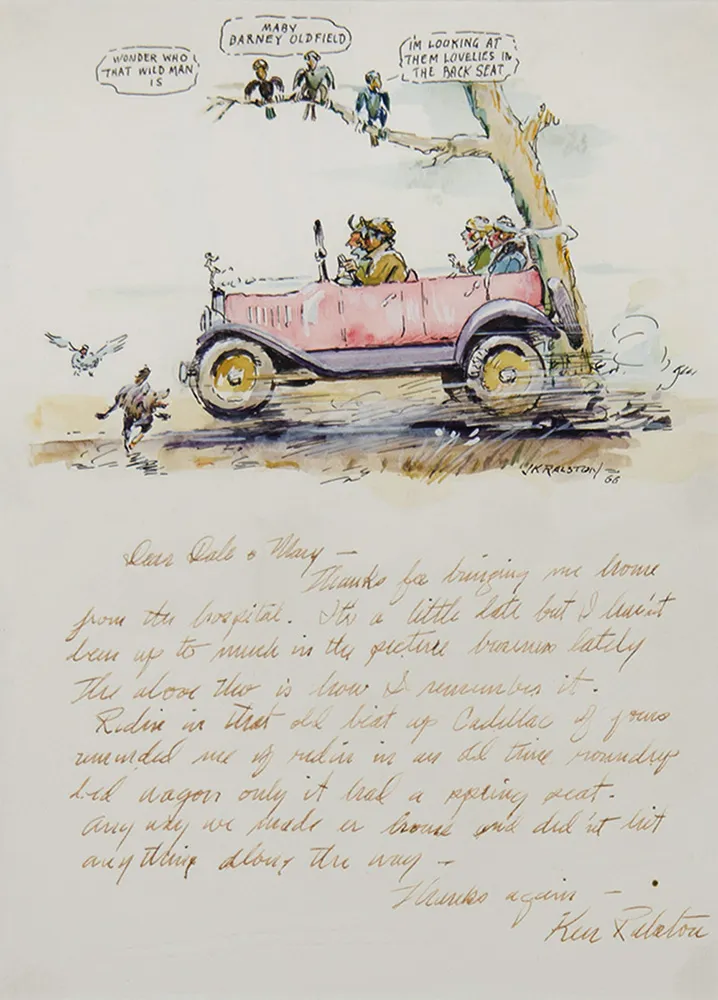 WONDER WHO
THAT WILD MAN
IS
MABY
BARNEY OLDFIELD
I'M LOOKING AT
THEM LOVELIES IN
THE BACK SEAT
J.K. RALSTON
66
Dear Dale & Mary —
Thanks for bringing me home
from the hospital. It's a little late but I hav'nt
been up to much in the picture business lately
The above tho is how I remember it.
Ridin in that old beat up Cadillac of yours
reminded me of ridin in an old time roundup
bed wagon only it had a spring seat.
Any way we made er home and did'nt hit
any thing along the way —
Thanks again —
Ken Ralston